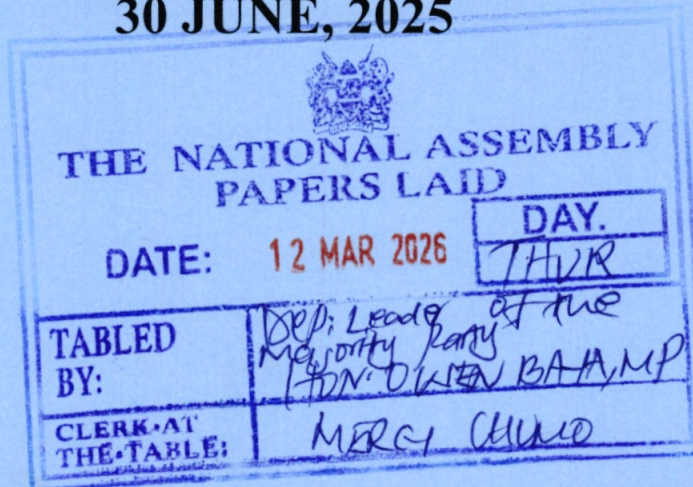 30 JUNE, 2025
THE NATIONAL ASSEMBLY
PAPERS LAID
DATE: 12 MAR 2026
DAY.
THUR
TABLED
BY:
Dep: Leader of the
Majority Party
HON. OWEN BAYA, MP
CLERK-AT
THE-TABLE:
MERCY CHUMO